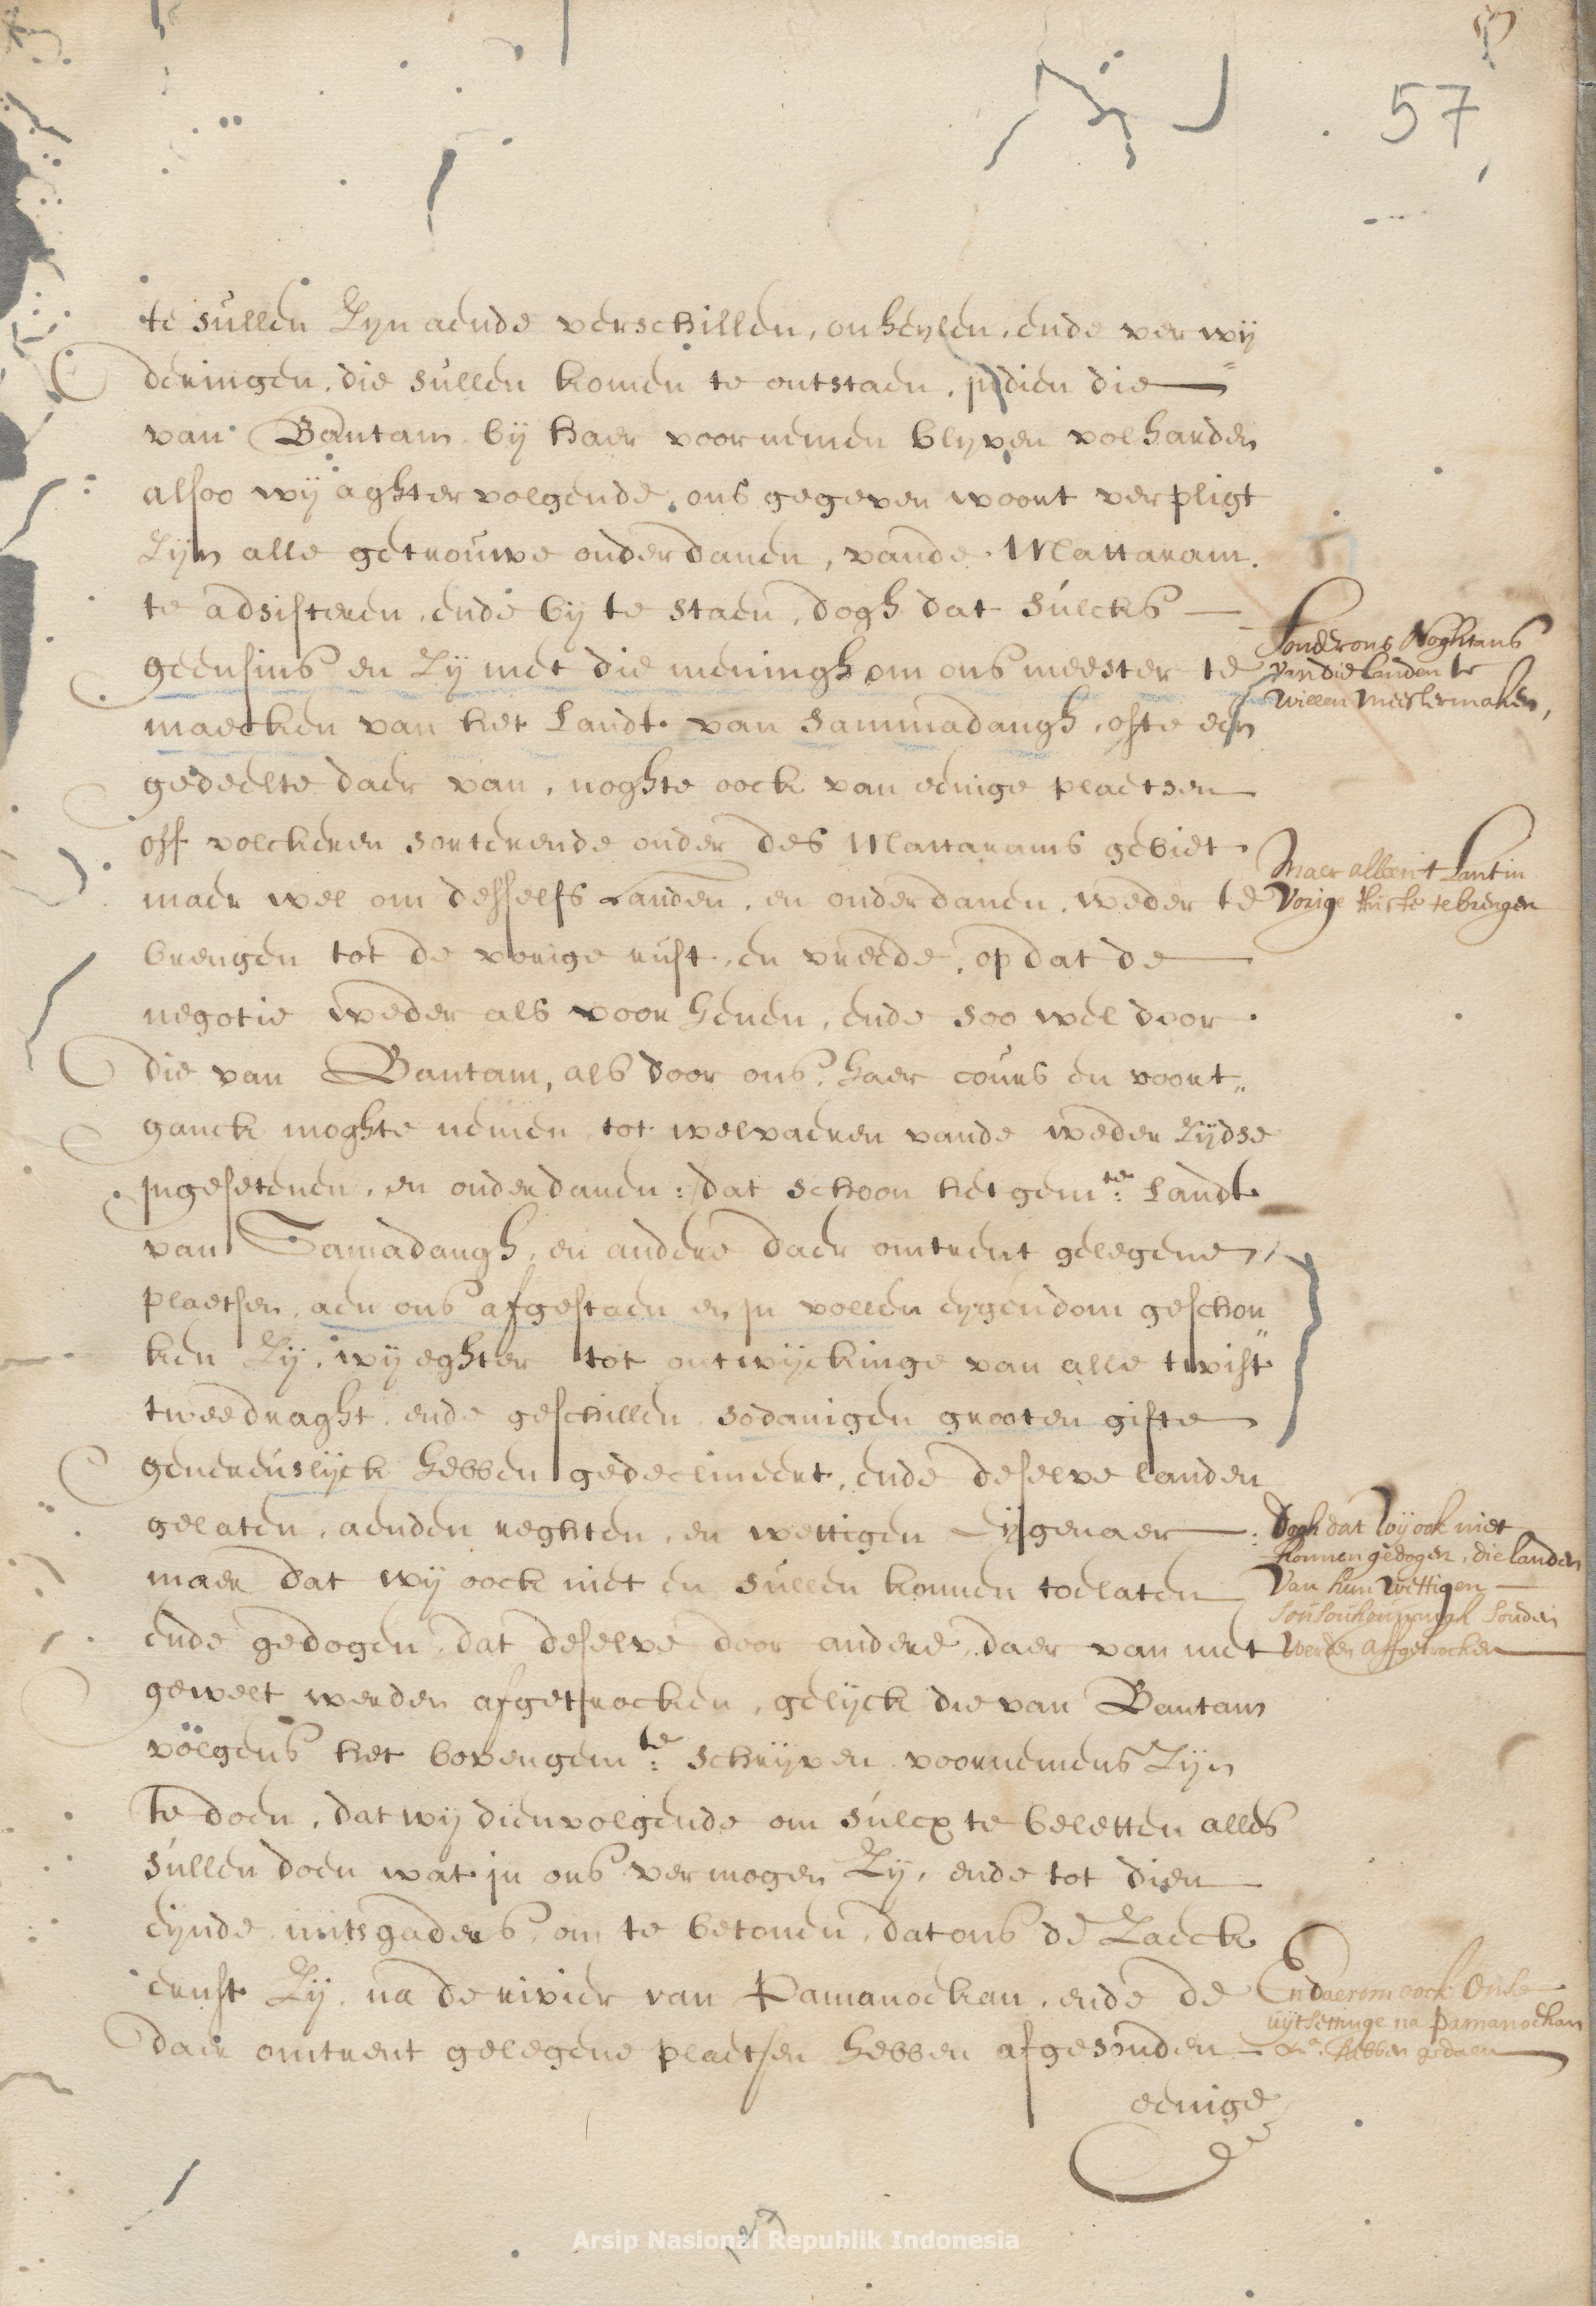 57
te sullen zyn aende verschillen, onheylen, ende verwij
deringen, die sullen komen te ontstaen, jndien die
van Bantam bij haer voornemen blyven volharden
alsoo wij aghtervolgende, ons gegeven woort verpligt
zijn alle getrouwe onderdanen, vande Mattaram.
te adsisteren, ende bij te staen, dogh dat sulcks
geensins en zij met die meningh om ons meester te
maecken van het landt van Sammadangh, ofte een
gedeelte daer van, noghte oock van eenige plaetsen
off volckeren sorterende onder des Mattarams gebiet
maer wel om desselfs Landen, en onderdanen, weder te
brengen tot de vorige rust, en vreede, op dat de
negotie weder als voor henen, ende soo wel door
die van Bantam, als door ons, haer cours en voort„
ganck moghte nemen, tot welvaeren vande weder zijdse
jngesetenen, en onderdanen: dat schoon het gemte: landt
van Samadangh, en andere daer omtrent gelegene
plaetsen, aen ons afgestaen en jn vollen eygendom geschon
ken zij, wij eghter tot ontwijckinge van alle twist
tweedraght, ende geschillen, sodanigen grooten gifte
genereuslijck hebben gedeclineert, ende deselve landen
gelaten, aenden reghten, en wettigen Eijgenaer
maer dat wij oock niet en sullen konnen toelaten
ende gedogen, dat deselve door andere, daer van met
gewelt werden afgetrocken, gelijck die van Bantam
volgens het bovengemte: schrijven voornemens zijn
te doen, dat wij dienvolgende om sulcx te beletten alles
sullen doen wat jn ons vermogen zij, ende tot dien
eynde, mitsgaders, om te betonen, dat ons de zaeck
ernst zij, na de rivier van Pamanoekan, ende de
daer omtrent gelegene plaetsen hebben afgesonden
eenige
Sonder ons Noghtans
van die landen te
willen meester maken,
Maer alleen 't Lant in
Vorige ruste te brengen
Dogh dat wij ook niet
konnen gedogen, die landen
Van hun wettigen
Sousouhounangh souden
werden affgetrocken
En daerom oock onse
uijtsettinge na Pamanoekan
&a. hebben gedaen
Arsip Nasional Republik Indonesia